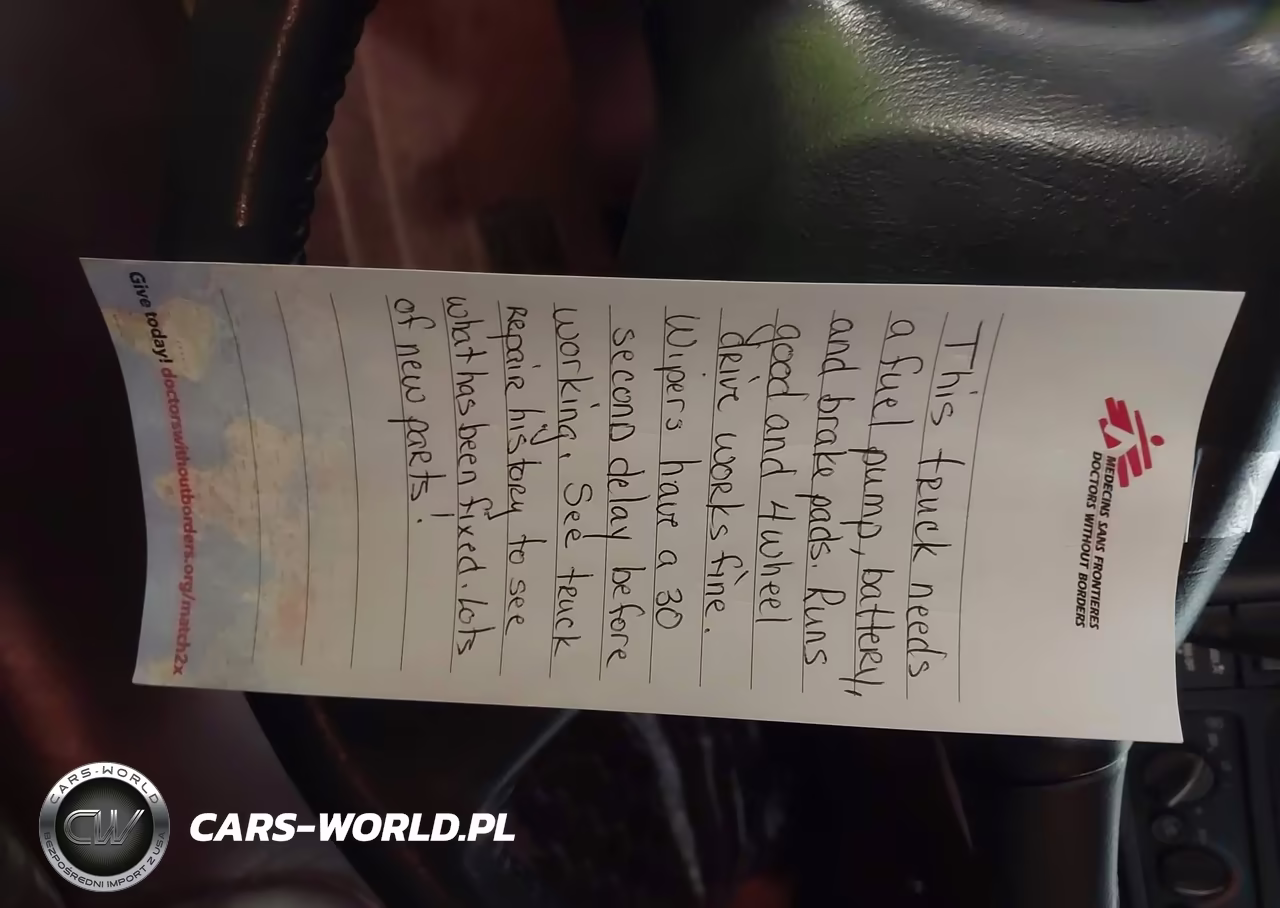 MEDECINS SANS FRONTIERES
DOCTORS WITHOUT BORDERS
This truck needs
a fuel pump, battery,
and brake pads. Runs
good and 4 wheel
drive works fine.
Wipers have a 30
second delay before
working. See truck
Repair history to see
what has been fixed. Lots
of new parts!
Give today! doctorswithoutborders.org/match2x
CARS-WORLD
CW
BEZPOŚREDNI IMPORT Z USA
CARS-WORLD.PL